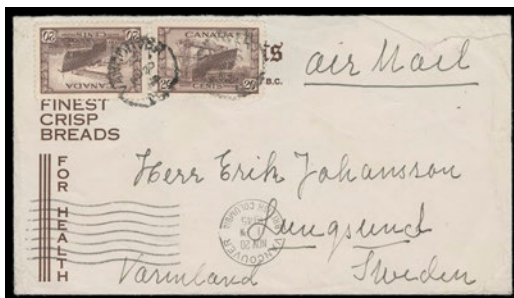 CANADA
20 CENTS 20
CANADA
20 CENTS 20
B.C.
air Mail
FINEST
CRISP
BREADS
FOR HEALTH
Herr Erik Johansson
Lungsund
Varmland Sweden
VANCOUVER
NOV 20
BRITISH COLUMBIA